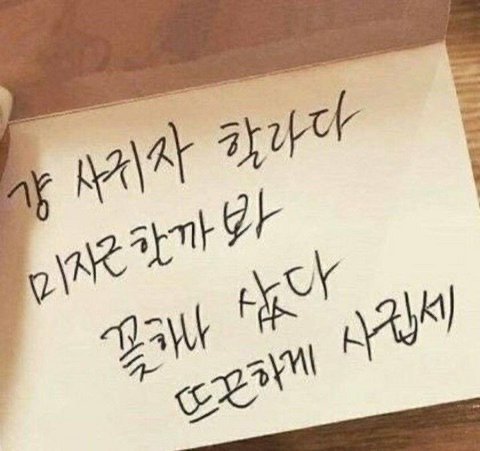 걍 사귀자 할라다
미지근할까봐
꽃하나 샀다
뜨끈하게 사귑세